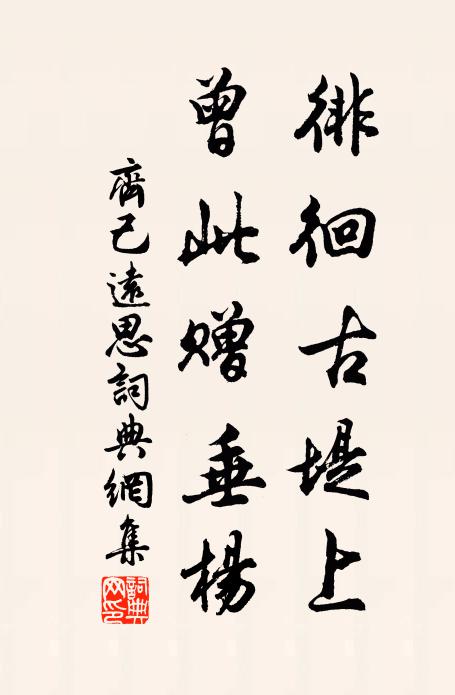 徘徊古堤上
曾此贈垂楊
齊己遠思詞典網集
詞典網印